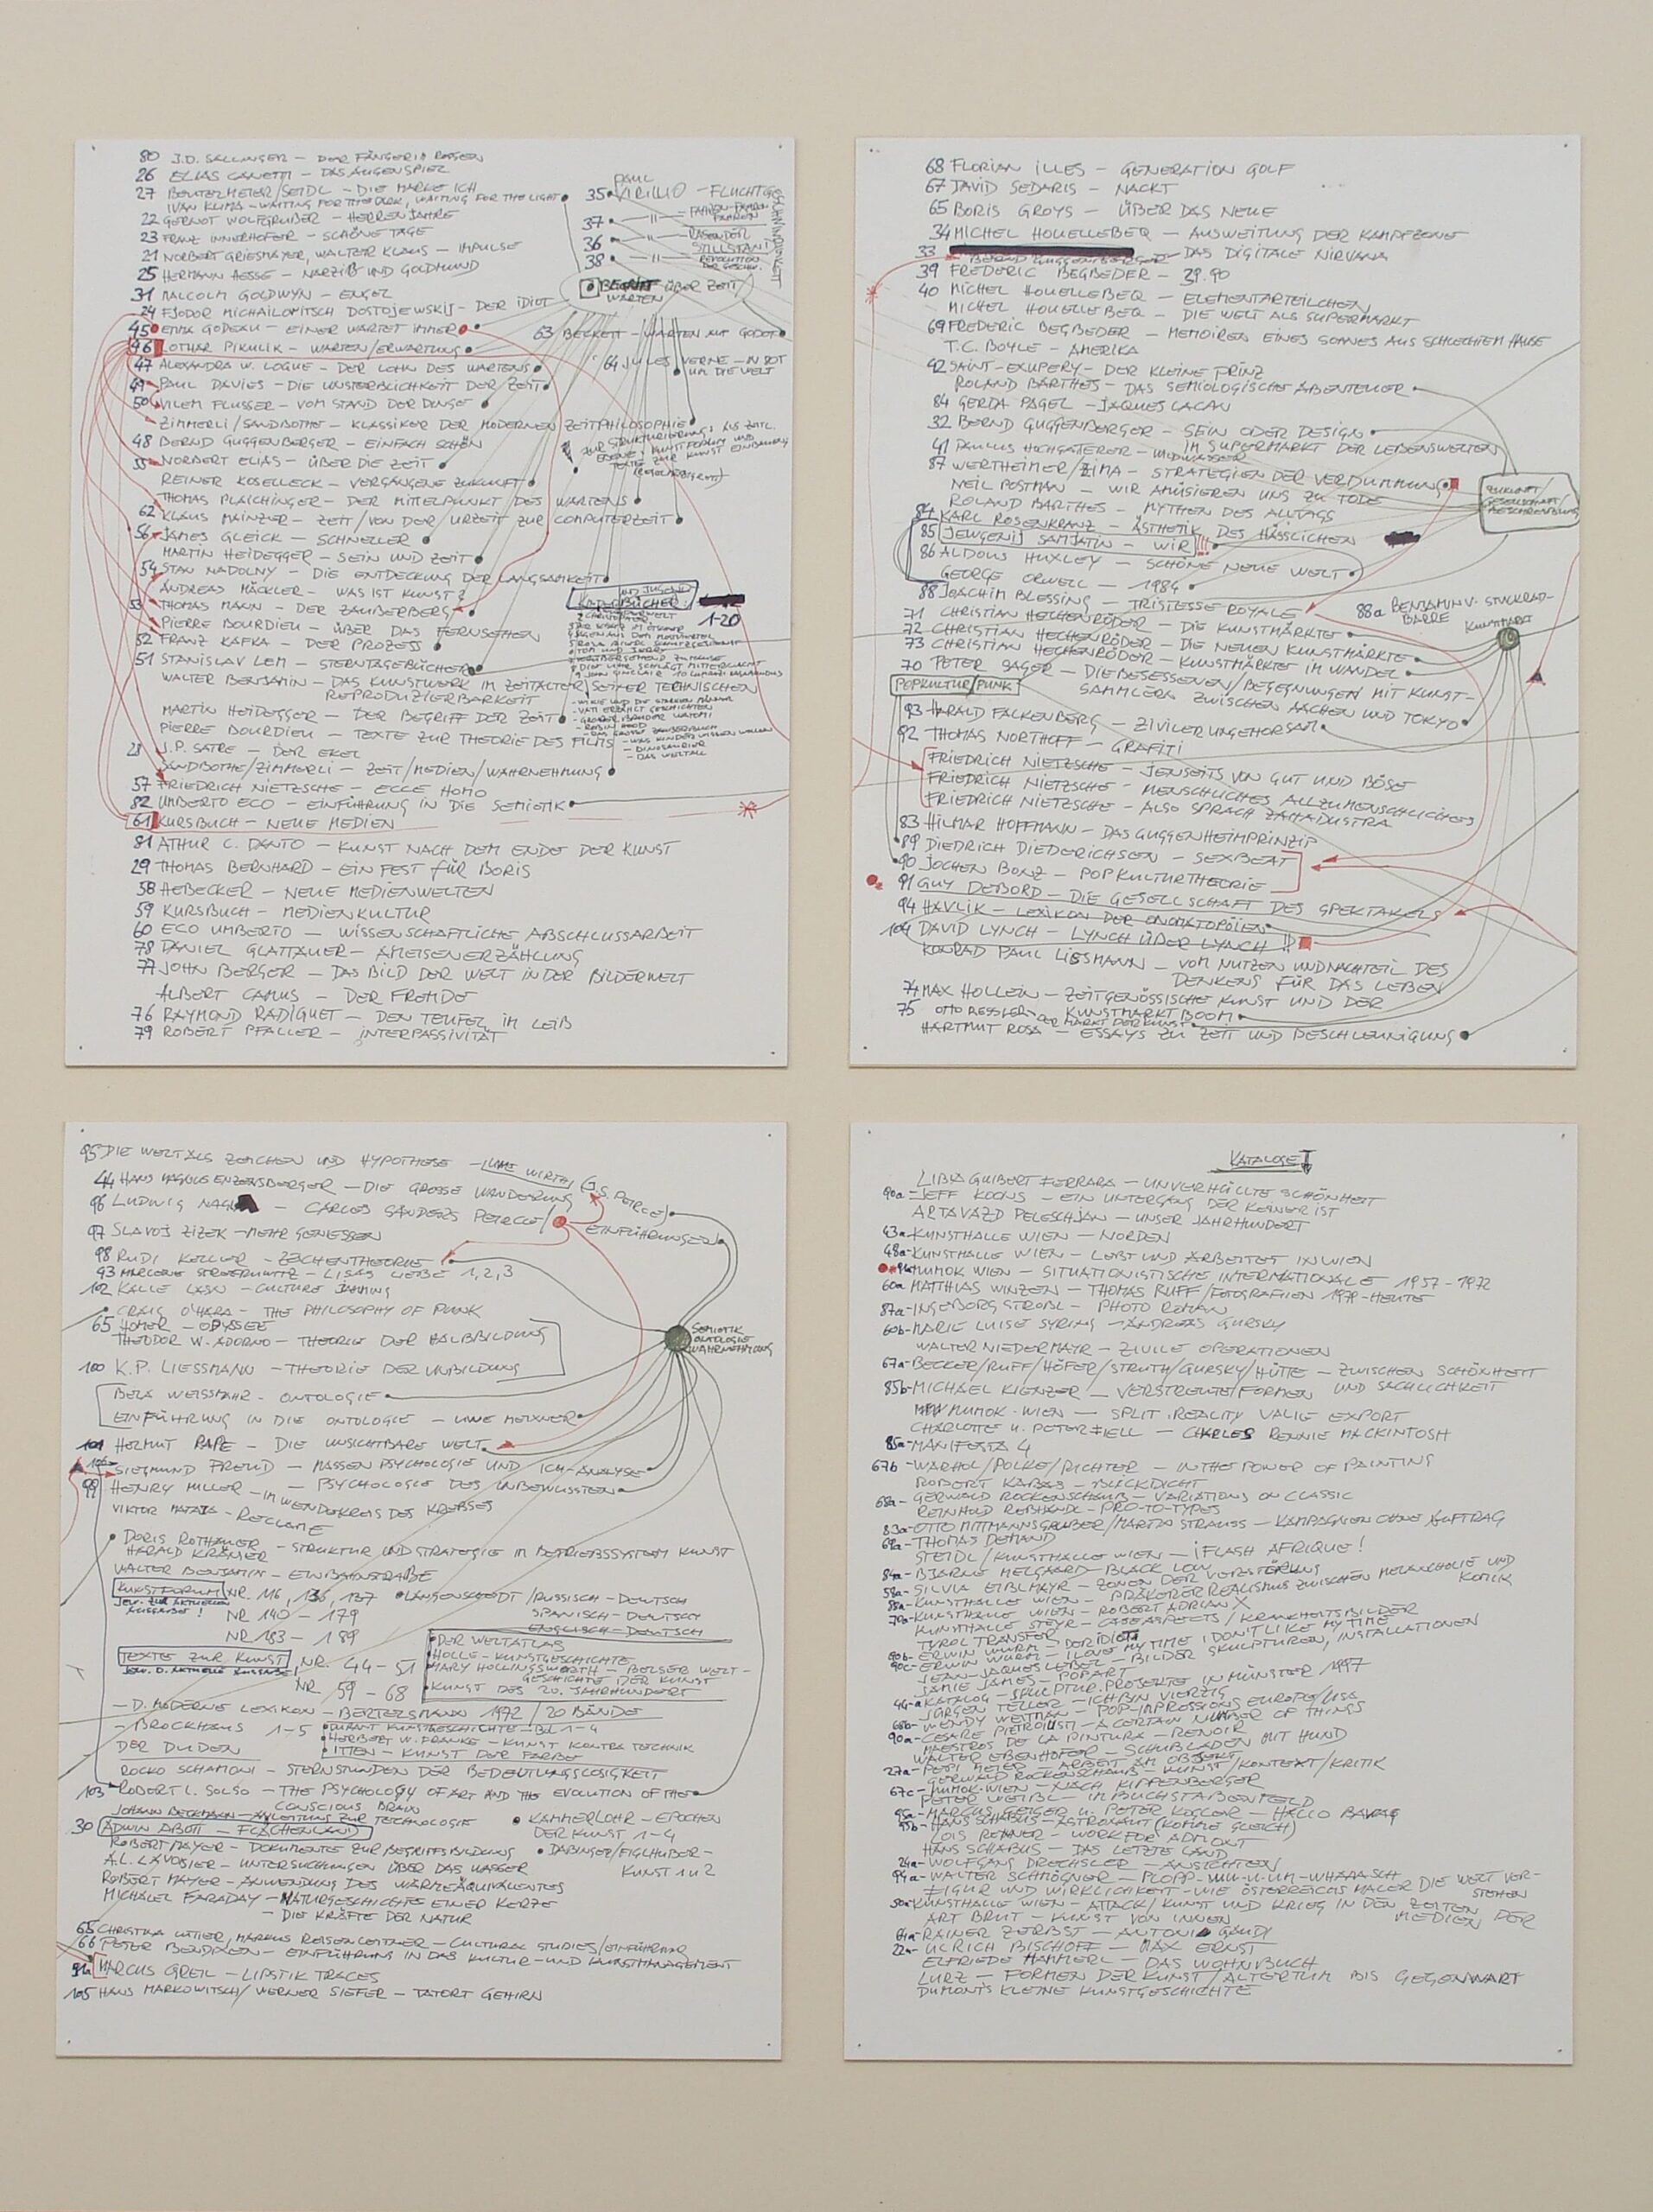 80 J.D. SALLINGER – DER FÄNGER I. ROGGEN
26 ELIAS CANETTI – DAS AUGENSPIEL
27 BEUTELMEIER/SEIDL – DIE MARKE ICH
IVAN KLIMA – WAITING FOR THE DARK, WAITING FOR THE LIGHT
22 GERNOT WOLFGRUBER – HERRENJAHRE
23 FRANZ INNERHOFER – SCHÖNE TAGE
21 NORBERT GRIESMAYER, WALTER KLAUS – IMPULSE
25 HERMANN HESSE – NARZIß UND GOLDMUND
31 MALCOLM GOLDWYN – ENGEL
24 FJODOR MICHAILOWITSCH DOSTOJEWSKIJ – DER IDIOT
45 EMMA GODEAU – EINER WARTET IMMER
46 LOTHAR PIKULIK – WARTEN/ERWARTUNG
47 ALEXANDRA W. LOGUE – DER LOHN DES WARTENS
49 PAUL DAVIES – DIE UNSTERBLICHKEIT DER ZEIT
50 VILEM FLUSSER – VOM STAND DER DINGE
ZIMMERLI/SANDBOTHE – KLASSIKER DER MODERNEN ZEITPHILOSOPHIE
48 BERND GUGGENBERGER – EINFACH SCHÖN
55 NORBERT ELIAS – ÜBER DIE ZEIT
REINER KOSELLECK – VERGANGENE ZUKUNFT
THOMAS PLAICHINGER – DER MITTELPUNKT DES WARTENS
62 KLAUS MAINZER – ZEIT/VON DER URZEIT ZUR COMPUTERZEIT
56 JAMES GLEICK – SCHNELLER
MARTIN HEIDEGGER – SEIN UND ZEIT
54 STAN NADOLNY – DIE ENTDECKUNG DER LANGSAMKEIT
ANDREAS MÄCKLER – WAS IST KUNST?
53 THOMAS MANN – DER ZAUBERBERG
PIERRE BOURDIEU – ÜBER DAS FERNSEHEN
52 FRANZ KAFKA – DER PROZESS
51 STANISLAV LEM – STERNTAGEBÜCHER
WALTER BENJAMIN – DAS KUNSTWERK IM ZEITALTER SEINER TECHNISCHEN
REPRODUZIERBARKEIT
MARTIN HEIDEGGER – DER BEGRIFF DER ZEIT
PIERRE BOURDIEU – TEXTE ZUR THEORIE DES FILMS
28 J.P. SATRE – DER EKEL
SANDBOTHE/ZIMMERLI – ZEIT/MEDIEN/WAHRNEHMUNG
57 FRIEDRICH NIETZSCHE – ECCE HOMO
82 UMBERTO ECO – EINFÜHRUNG IN DIE SEMIOTIK
61 KURSBUCH – NEUE MEDIEN
81 ATHUR C. DANTO – KUNST NACH DEM ENDE DER KUNST
29 THOMAS BERNHARD – EIN FEST FÜR BORIS
58 HEBECKER – NEUE MEDIENWELTEN
59 KURSBUCH – MEDIENKULTUR
60 ECO UMBERTO – WISSENSCHAFTLICHE ABSCHLUSSARBEIT
78 DANIEL GLATTAUER – AMEISENERZÄHLUNG
77 JOHN BERGER – DAS BILD DER WELT IN DER BILDERWELT
ALBERT CAMUS – DER FREMDE
76 RAYMOND RADIGUET – DEN TEUFEL IM LEIB
79 ROBERT PFALLER – INTERPASSIVITÄT
35 PAUL VIRILIO – FLUCHTIGE GESCHWINDIGKEIT
37 –"– = FAHREN-FAHREN FAHREN
36 –"– – RASENDER STILLSTAND
38 –"– – REVOLUTION DER GESCHW.
ÜBER ZEIT
WARTEN
63 BECKETT – WARTEN AUF GODOT
64 JULES VERNE – IN 80T
UM DIE WELT
UND JUGEND
KINDERBÜCHER: 1-20
TOM UND JERRY
– WICKIE UND DIE STARKEN MÄNNER
– VATI ERZÄHLT GESCHICHTEN
– ROBIN HOOD
– WAS KINDER WISSEN WOLLEN
– DINOSAURIER
– DAS WELTALL
68 FLORIAN ILLES – GENERATION GOLF
67 DAVID SEDARIS – NACKT
65 BORIS GROYS – ÜBER DAS NEUE
34 MICHEL HOUELLEBEQ – AUSWEITUNG DER KAMPFZONE
33 BERND GUGGENBERGER – DAS DIGITALE NIRVANA
39 FREDERIC BEGBEDER – 39.90
40 MICHEL HOUELLEBEQ – ELEMENTARTEILCHEN
MICHEL HOUELLEBEQ – DIE WELT ALS SUPERMARKT
69 FREDERIC BEGBEDER – MEMOIREN EINES SOHNES AUS SCHLECHTEM HAUSE
T.C. BOYLE – AMERIKA
42 SAINT-EXUPERY – DER KLEINE PRINZ
ROLAND BARTHES – DAS SEMIOLOGISCHE ABENTEUER
84 GERDA PAGEL – JAQUES LACAN
32 BERND GUGGENBERGER – SEIN ODER DESIGN
IM SUPERMARKT DER LEBENSWELTEN
41 PAULUS HOCHGATERER – WILDWASSER
87 WERTHEIMER/ZIMA – STRATEGIEN DER VERDUMMUNG
NEIL POSTMAN – WIR AMÜSIEREN UNS ZU TODE
ROLAND BARTHES – MYTHEN DES ALLTAGS
84 KARL ROSENKRANZ – ÄSTHETIK DES HÄSSLICHEN
85 JEWGENIJ SAMJATIN – WIR!!!
86 ALDOUS HUXLEY – SCHÖNE NEUE WELT
GEORGE ORWELL – 1984
88 JOACHIM BLESSING – TRISTESSE ROYALE
88a BENJAMIN V. STUCKRAD-
BARRE
71 CHRISTIAN HECHENRÖDER – DIE KUNSTMÄRKTE
72 CHRISTIAN HECHENRÖDER – DIE NEUEN KUNSTMÄRKTE
73 CHRISTIAN HECHENRÖDER – KUNSTMÄRKTE IM WANDEL
70 PETER SAGER – DIE BESESSENEN/BEGEGNUNGEN MIT KUNST-
SAMMLERN ZWISCHEN AACHEN UND TOKYO
POPKULTUR/PUNK
93 HARALD FALKENBERG – ZIVILER UNGEHORSAM
92 THOMAS NORTHOFF – GRAFITI
FRIEDRICH NIETZSCHE – JENSEITS VON GUT UND BÖSE
FRIEDRICH NIETZSCHE – MENSCHLICHES ALLZUMENSCHLICHES
FRIEDRICH NIETZSCHE – ALSO SPRACH ZARADUSTRA
83 HILMAR HOFFMANN – DAS GUGGENHEIMPRINZIP
89 DIEDRICH DIEDERICHSEN – SEXBEAT
90 JOCHEN BONZ – POPKULTURTHEORIE
91 GUY DEBORD – DIE GESELLSCHAFT DES SPEKTAKELS
94 HAVLIK – LEXIKON DER ONOMATOPÖIEN
104 DAVID LYNCH – LYNCH ÜBER LYNCH !!
KONRAD PAUL LIESMANN – VOM NUTZEN UND NACHTEIL DES
DENKENS FÜR DAS LEBEN
74 MAX HOLLEIN – ZEITGENÖSSISCHE KUNST UND DER
KUNSTMARKTBOOM
75 OTTO RESSLER – DER MARKT DER KUNST
HARTMUT ROSA – ESSAYS ZU ZEIT UND BESCHLEUNIGUNG
ZUKUNFT/
GESELLSCHAFT/
BESCHREIBUNG
KUNSTMARKT
95 DIE WELT ALS ZEICHEN UND HYPOTHESE – UWE WIRTH (C.S. PEIRCE)
44 HANS MAGNUS ENZENSBERGER – DIE GROSSE WANDERUNG
96 LUDWIG NAGL – CARLES SANDERS PEIRCE/
EINFÜHRUNGEN
97 SLAVOJ ZIZEK – MEHR GENIESSEN
98 RUDI KELLER – ZEICHENTHEORIE
93 MARLENE STREERUWITZ – LISAS LIEBE 1,2,3
102 KALLE LASN – CULTURE JAMMING
CRAIG O'HARA – THE PHILOSOPHY OF PUNK
65 HOMER – ODYSSEE
THEODOR W. ADORNO – THEORIE DER HALBBILDUNG
100 K.P. LIESSMANN – THEORIE DER UNBILDUNG
BELA WEISSMAHR – ONTOLOGIE
EINFÜHRUNG IN DIE ONTOLOGIE – UWE MEIXNER
SEMIOTIK
ONTOLOGIE
WAHRNEHMUNG
101 HELMUT PAPE – DIE UNSICHTBARE WELT
SIEGMUND FREUD – MASSENPSYCHOLOGIE UND ICH-ANALYSE
– PSYCHOLOGIE DES UNBEWUSSTEN
99 HENRY MILLER – IM WENDEKREIS DES KREBSES
VIKTOR MATAJA – RECLAME
DORIS ROTHAUER
HARALD KRÄMER – STRUKTUR UND STRATEGIE IM BETRIEBSSYSTEM KUNST
WALTER BENJAMIN – EINBAHNSTRAßE
KUNSTFORUM NR. 116, 136, 137
JEW. ZUR AKTUELLEN
AUSGABE!
NR 140 – 179
NR 183 – 189
LANGENSCHEIDT/RUSSISCH-DEUTSCH
SPANISCH-DEUTSCH
ENGLISCH-DEUTSCH
TEXTE ZUR KUNST NR. 44 – 51
JEW. D. AKTUELLE AUSGABE!
NR 59 – 68
DER WELTATLAS
HOLLE – KUNSTGESCHICHTE
MARY HOLLINGSWORTH – BELSER WELT-
GESCHICHTE DER KUNST
KUNST DES 20. JAHRHUNDERT
– D. MODERNE LEXIKON – BERTELSMANN 1972/20 BÄNDE
– BROCKHAUS 1-5
DUMONT KUNSTGESCHICHTE – Bd 1-4
HERBERT W. FRANKE – KUNST KONTRA TECHNIK
ITTEN – KUNST DER FARBE
DER DUDEN
ROCKO SCHAMONI – STERNSTUNDEN DER BEDEUTUNGSLOSIGKEIT
103 ROBERT L. SOLSO – THE PSYCHOLOGY OF ART AND THE EVOLUTION OF THE
CONSCIOUS BRAIN
JOHANN BECKMANN – ANLEITUNG ZUR TECHNOLOGIE
30 EDWIN ABOTT – FLÄCHENLAND
KAMMERLOHR – EPOCHEN
DER KUNST 1-4
ROBERT MAYER – DOKUMENTE ZUR BEGRIFFSBILDUNG
A.L. LAVOSIER – UNTERSUCHUNGEN ÜBER DAS WASSER
ROBERT MAYER – ANWENDUNG DES WÄRMEÄQUIVALENTES
KUNST 1 U 2
MICHAEL FARADAY – NATURGESCHICHTE EINER KERZE
– DIE KRÄFTE DER NATUR
65 CHRISTINA LUTTER, MARKUS REISENLEITNER – CULTURAL STUDIES/EINFÜHRUNG
66 PETER BENDIXEN – EINFÜHRUNG IN DAS KULTUR- UND KUNSTMANAGEMENT
91a MARCUS GREIL – LIPSTIK TRACES
105 HANS MARKOWITSCH/WERNER SIEFER – TATORT GEHIRN
KATALOGE
LIBIA GUIBERT FERRARA – UNVERHÜLLTE SCHÖNHEIT
90a – JEFF KOONS – EIN UNTERGANG DER KEINER IST
ARTAVAZD PELESCHJAN – UNSER JAHRHUNDERT
43a – KUNSTHALLE WIEN – NORDEN
48a – KUNSTHALLE WIEN – LEBT UND ARBEITET IN WIEN
MUMOK WIEN – SITUATIONISTISCHE INTERNATIONALE 1957-1972
60a MATTHIAS WINZEN – THOMAS RUFF/FOTOGRAFIEN 1979-HEUTE
87a – INGEBORG STROBL – PHOTO ROMAN
60b – MARIE LUISE SYRING – ANDREAS GURSKY
WALTER NIEDERMAYR – ZIVILE OPERATIONEN
67a – BECKER/RUFF/HÖFER/STRUTH/GURSKY/HÜTTE – ZWISCHEN SCHÖNHEIT
UND SACHLICHKEIT
85b – MICHAEL KIENZER – VERSTREUTE FORMEN
MUMOK WIEN – SPLIT REALITY VALIE EXPORT
CHARLOTTE U. PETER FIELL – CHARLES RENNIE MACKINTOSH
85a – MANIFESTA 4
67b – WARHOL/POLKE/RICHTER – IN THE POWER OF PAINTING
ROBERT KABAS – BLICKDICHT
68a – GERWALD ROCKENSCHAUB – VARIATIONS ON CLASSIC
PRO-TO-TYPES
83a – OTTO MITTMANNSGRUBER/MARTIN STRAUSS – KAMPAGNEN OHNE AUFTRAG
69a – THOMAS DEMAND
STEIDL/KUNSTHALLE WIEN – ¡FLASH AFRIQUE!
84a – BJARNE MELGAARD – BLACK LOW
58a – SILVIA EIBLMAYR – ZONEN DER VERSTÖRUNG
KUNSTHALLE WIEN – PREKÄRER REALISMUS ZWISCHEN MELANCHOLIE UND
KOMIK
70a – KUNSTHALLE WIEN – ROBERT ADRIAN X
KUNSTHALLE STEYR – CASE ASPECTS/KRANKHEITSBILDER
TYROL TRANSFER – DER IDIOT
90b – ERWIN WURM – I LOVE MY TIME I DON'T LIKE MY TIME
90c – ERWIN WURM – BILDER SKULPTUREN, INSTALLATIONEN
JEAN-JAQUES LEBEL
JAMIE JAMES – POPART
44a KATALOG – SKULPTUR. PROJEKTE IN MÜNSTER 1997
JÜRGEN TELLER – ICH BIN VIERZIG
68b – WENDY WEITMAN – POP IMPRESSIONS EUROPE/USA
90a – CESARE PIETROIUSTI – A CERTAIN NUMBER OF THINGS
MAESTROS DE LA PINTURA – RENOIR
WALTER EBENHOFER – SCHUBLADEN MIT HUND
27a – ARBEIT AM OBJEKT
GERWALD ROCKENSCHAUB – KUNST/KONTEXT/KRITIK
67c – MUMOK WIEN – NACH KIPPENBERGER
PETER WEIBL – IM BUCHSTABENFELD
95a – MARCUS GEIGER U. PETER KOGLER – HALLO BAWAG
95b – HANS SCHABUS – ASTRONAUT (KOMME GLEICH)
LOIS RENNER – WORK FOR ADMONT
HANS SCHABUS – DAS LETZTE LAND
24a – WOLFGANG DRECHSLER – ANSICHTEN
94a – WALTER SCHMÖGNER – PLOPP
FIGUR UND WIRKLICHKEIT – WIE ÖSTERREICHS MALER DIE WELT VER-
STEHEN
50a – KUNSTHALLE WIEN – ATTACK/KUNST UND KRIEG IN DEN ZEITEN DER
MEDIEN
ART BRUT – KUNST VON INNEN
61a – RAINER ZERBST – ANTONI GAUDI
22a – ULRICH BISCHOFF – MAX ERNST
ELFRIEDE HAMMERL – DAS WOHNBUCH
LURZ – FORMEN DER KUNST/ALTERTUM BIS GEGENWART
DUMONTS KLEINE KUNSTGESCHICHTE